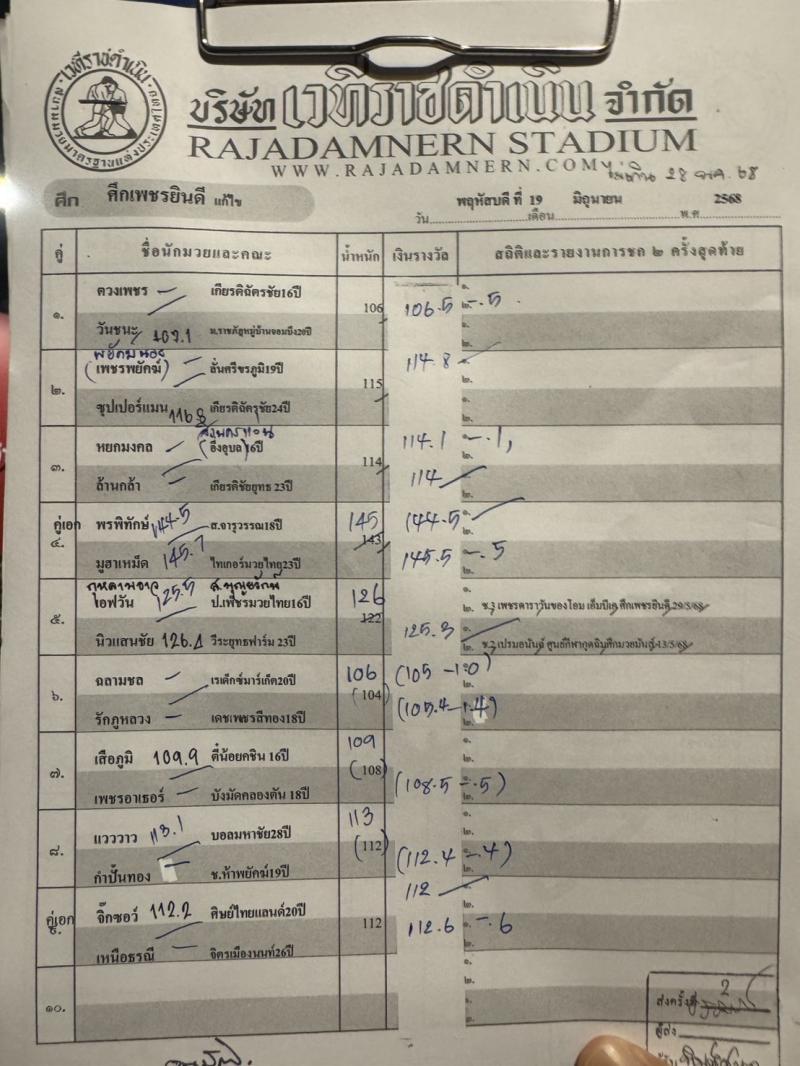 เวทีราชดำเนิน
บริษัท เวทีราชดำเนิน จำกัด
RAJADAMNERN STADIUM
WWW.RAJADAMNERN.COM
28 68
ศึก ศึกเพชรยินดี แก้ไข
วัน พฤหัสบดี ที่ 19 เดือน มิถุนายน พ.ศ. 2568
คู่ ชื่อนักมวยและคณะ น้ำหนัก เงินรางวัล สถิติและรายงานการชก ๒ ครั้งสุดท้าย
๑. ดวงเพชร เกียรติฉัตรชัย16ปี 106 106.5 -.5 ๑. ๒.
วันชนะ 109.1 ม.ราชภัฏหมู่บ้านจอมบึง20ปี ๑. ๒.
พยัคฆ์น้อย
๒. (เพชรพยัคฆ์) ลั่นศรีขรภูมิ19ปี 115 114.8 ๑. ๒.
ซุปเปอร์แมน 116.8 เกียรติฉัตรชัย24ปี ๑. ๒.
๓. หยกมงคล (อึ่งอุบล)16ปี 114 114.1 -.1 ๑. ๒.
ล้านกล้า เกียรติชัยยุทธ 23ปี 114 ๑. ๒.
คู่เอก ๔. พรพิทักษ์ 144.5 ส.จารุวรรณ18ปี 145 143 144.5 ๑. ๒.
มูฮาเหม็ด 145.7 ไทเกอร์มวยไทย23ปี 145.5 -.5 ๑. ๒.
ส.บุญยรักษ์
๕. ไอฟวัน 125.5 ป.เพชรมวยไทย16ปี 126 122 ๑. ๒. ช.3 เพชรดาราวันของโอม เอ็มบีเค ศึกเพชรยินดี 29/5/68
นิวแสนชัย 126.2 วีระยุทธฟาร์ม 23ปี 125.3 ๑. ๒. ช.2 เปรมอนันต์ ศูนย์กีฬากุดฉิม ศึกมวยมันส์ 13/5/68
๖. ฉลามชล เรเด็กซ์มาร์เก็ต20ปี 106 (104) (105 -1.0) ๑. ๒.
รักภูหลวง เดชเพชรสีทอง18ปี (105.4 -1.4) ๑. ๒.
๗. เสือภูมิ 109.9 ตี๋น้อยคชิน 16ปี 109 (108) ๑. ๒.
เพชรอาเธอร์ บังมัดคลองตัน 18ปี (108.5 -.5) ๑. ๒.
๘. แวววาว 113.1 บอลมหาชัย28ปี 113 (112) ๑. ๒.
กำปั้นทอง ช.ห้าพยัคฆ์19ปี (112.4 -.4) ๑. ๒.
คู่เอก ๙. จิ๊กซอว์ 112.2 ศิษย์ไทยแลนด์20ปี 112 112 ๑. ๒.
เหนือธรณี จิตรเมืองนนท์26ปี 112.6 -.6 ๑. ๒.
๑๐. ๑. ๒.
๑. ๒.
ส่งครั้งที่ 2
ผู้ส่ง